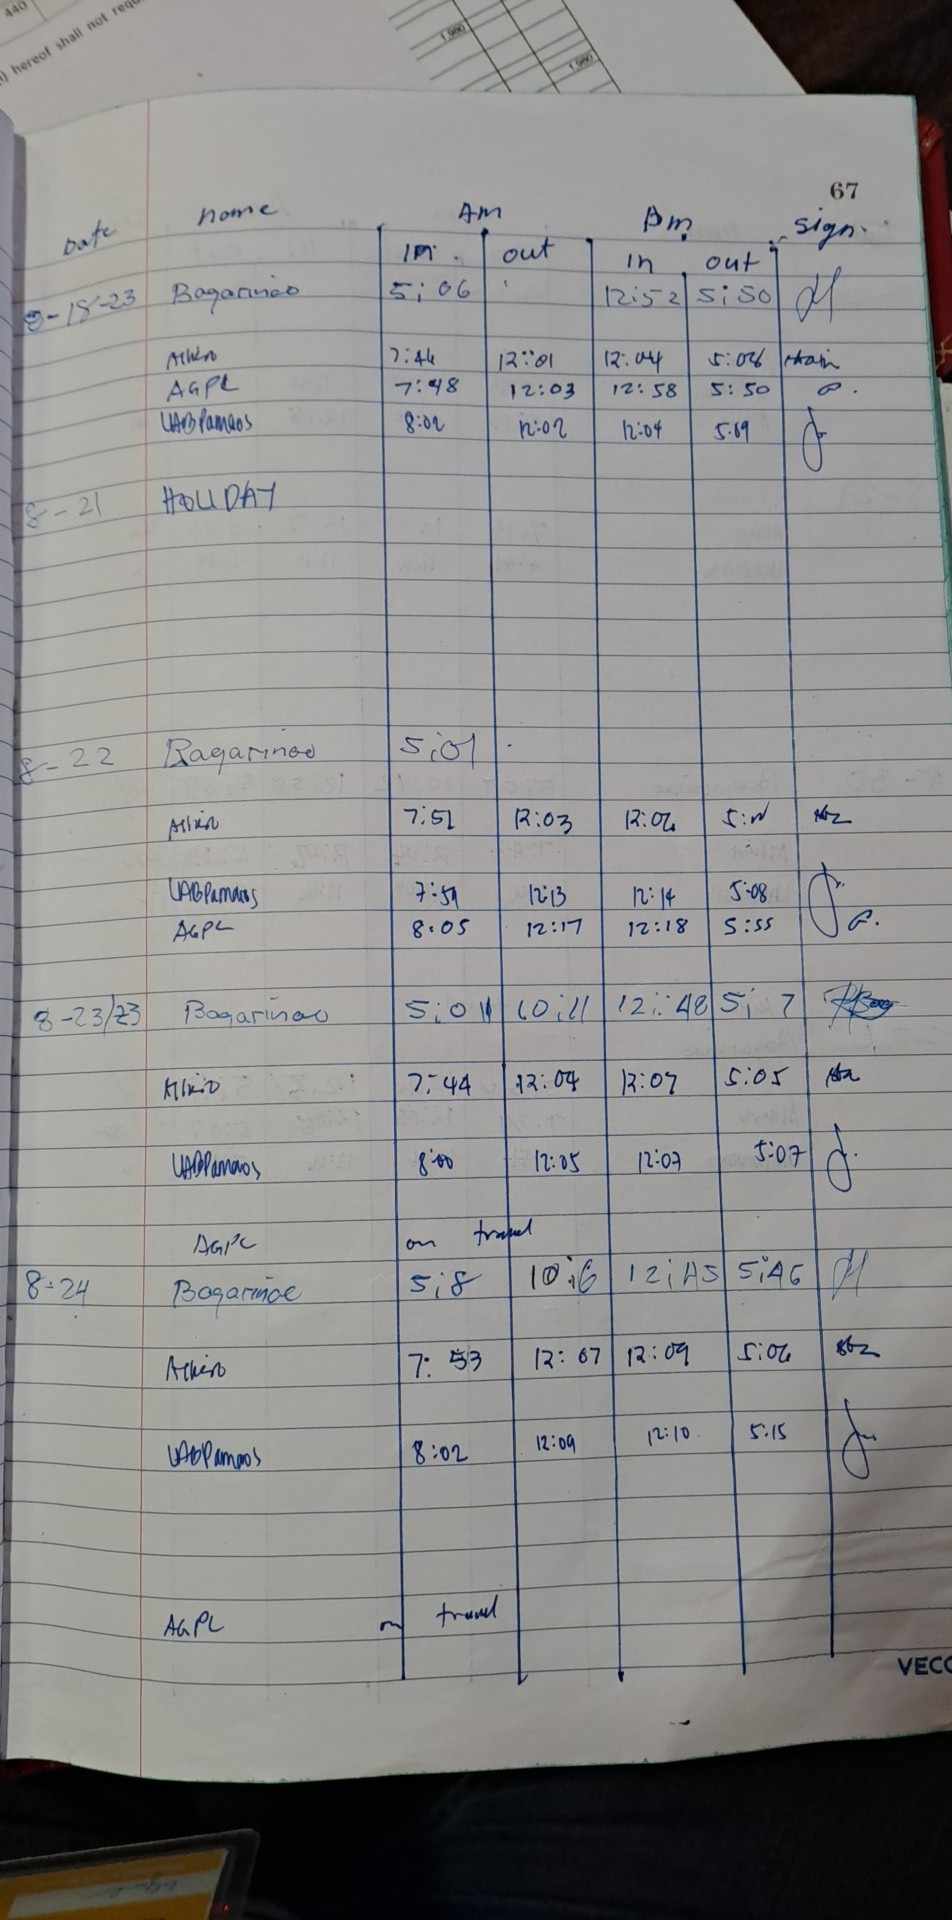 440
hereof shall not requ
1,980
1,980
67
Date name Am Pm sign.
in out in out
8-18-23 Bagarinao 5;06 12;52 5;50
7:46 12:01 12:04 5:06
AGPL 7:48 12:03 12:58 5:50
UABPamaos 8:02 12:02 12:04 5:09
8-21 HOLIDAY
8-22 Bagarinao 5;01
7:51 12:03 12:06
UABPamaos 7:59 12:13 12:14 5:08
AGPL 8:05 12:17 12:18 5:55
8-23/23 Bagarinao 5;01 10;11 12;48 5;7
7:44 12:04 12:07 5:05
UABPamaos 8:00 12:05 12:07 5:07
AGPL on travel
8-24 Bagarinao 5;8 10;6 12;45 5;46
7:53 12:07 12:09 5:06
UABPamaos 8:02 12:09 12:10 5:15
AGPL on travel
VECO